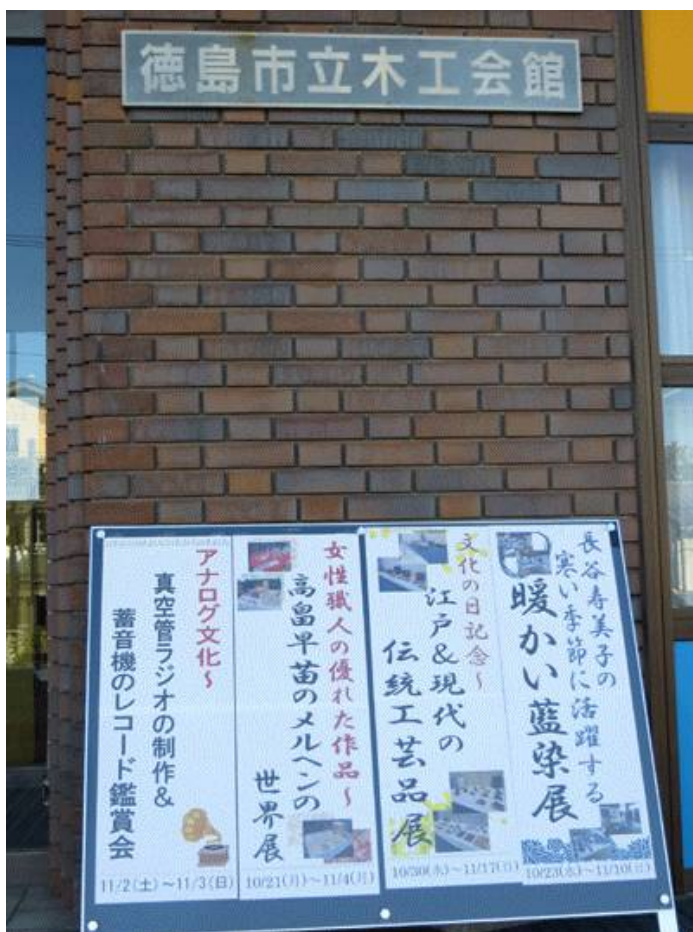 徳島市立木工会館
長谷寿美子の
寒い季節に活躍する
暖かい藍染展
10/23(水)～11/10(日)
文化の日記念～
江戸&現代の
伝統工芸品展
10/30(水)～11/17(日)
女性職人の優れた作品～
高畠早苗のメルヘンの
世界展
10/21(月)～11/4(月)
アナログ文化～
真空管ラジオの制作&
蓄音機のレコード鑑賞会
11/2(土)～11/3(日)